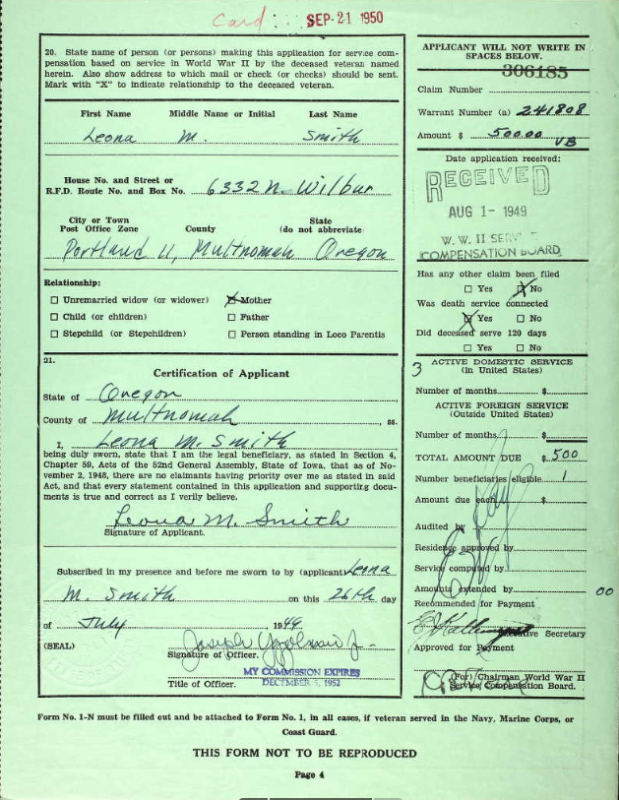 Card: SEP 21 1950
20. State name of person (or persons) making this application for service com-
pensation based on service in World War II by the deceased veteran named
herein. Also show address to which mail or check (or checks) should be sent.
Mark with "X" to indicate relationship to the deceased veteran.
First Name Middle Name or Initial Last Name
Leona M. Smith
House No. and Street or
R.F.D. Route No. and Box No. 6332 N. Wilbur
City or Town
Post Office Zone County State
(do not abbreviate)
Portland 11, Multnomah Oregon
Relationship:
☐ Unremarried widow (or widower) ☒ Mother
☐ Child (or children) ☐ Father
☐ Stepchild (or Stepchildren) ☐ Person standing in Loco Parentis
21.
Certification of Applicant
State of Oregon
County of Multnomah ss.
I, Leona M. Smith
being duly sworn, state that I am the legal beneficiary, as stated in Section 4,
Chapter 59, Acts of the 52nd General Assembly, State of Iowa, that as of No-
vember 2, 1948, there are no claimants having priority over me as stated in said
Act, and that every statement contained in this application and supporting docu-
ments is true and correct as I verily believe.
Leona M. Smith
Signature of Applicant.
Subscribed in my presence and before me sworn to by (applicant) Leona
M. Smith on this 26th day
of July 1949
(SEAL) Joseph
Signature of Officer.
MY COMMISSION EXPIRES
DECEMBER 1952
Title of Officer.
APPLICANT WILL NOT WRITE IN
SPACES BELOW.
306185
Claim Number
Warrant Number (a) 241808
Amount $ 500.00
VB
Date application received:
RECEIVED
AUG 1- 1949
W. W. II SERVICE
COMPENSATION BOARD
Has any other claim been filed
☐ Yes ☒ No
Was death service connected
☒ Yes ☐ No
Did deceased serve 120 days
☐ Yes ☐ No
3 ACTIVE DOMESTIC SERVICE
(in United States)
Number of months $
ACTIVE FOREIGN SERVICE
(Outside United States)
Number of months $
TOTAL AMOUNT DUE $ 500
Number beneficiaries eligible 1
Amount due each $
Audited by
Residence approved by
Service computed by
Amounts extended by 00
Recommended for Payment
Executive Secretary
Approved for Payment
(For) Chairman World War II
Service Compensation Board.
Form No. 1-N must be filled out and be attached to Form No. 1, in all cases, if veteran served in the Navy, Marine Corps, or
Coast Guard.
THIS FORM NOT TO BE REPRODUCED
Page 4